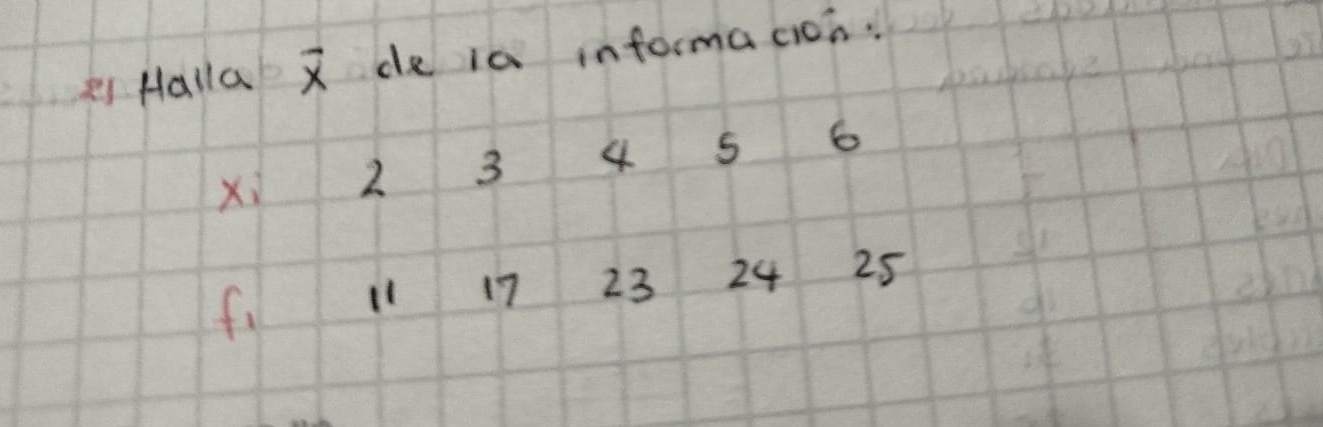 Halla x̄ de la información:
xi 2 3 4 5 6
fi 11 17 23 24 25